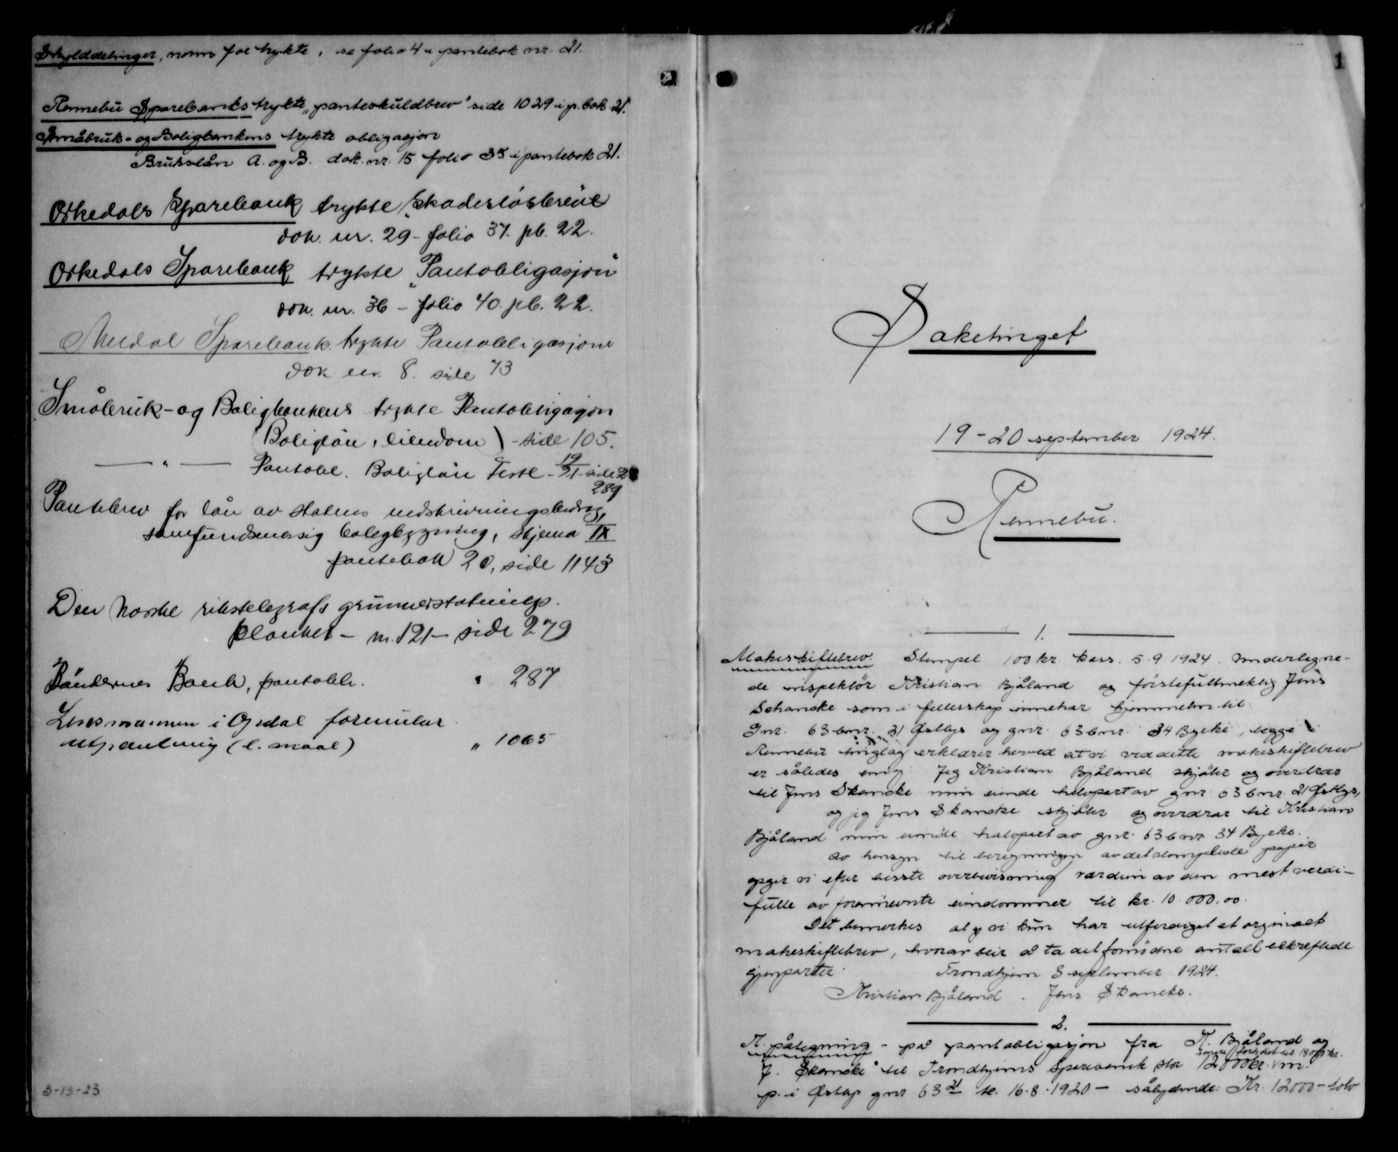 Skylddelinger, norm for trykte, se folio 4 i pantebok nr. 21.
Rennebu Sparebanks trykte "panteskuldbrev" side 1029 i p.bok 21.
Småbruk- og Boligbankens trykte obligasjon
Brukslån A. og B. dok. nr. 15 folio 35 i pantebok 21.
Orkedals Sparebank trykte "Skadesløsbreve"
dok. nr. 29 - folio 37. pb. 22.
Orkedals Sparebank trykte "Pantobligasjon"
dok. nr. 36 - folio 40. pb. 22.
Meldal Sparebank trykte Pantobligasjon
dok nr. 8. side 73
Småbruk- og Boligbankens trykte Pantobligasjon
(Boliglån, eiendom) - side 105.
— " — Pantobl. Boliglån Feste - 19/21 - side 2
289
Pantebrev for lån av statens nedskrivningsbidrag,
samfundsmessig boligbygning, skjema IX
pantebok 20, side 1143
Den Norske rikstelegrafs
planker - nr. 121 - side 279
Bøndernes Bank, pantobl. " 287
Lensmannen i Opdal formular
utpantning (l. maal) " 1065
3-13-23
1
Saketinget
19-20 september 1924.
Rennebu.
1.
Makeskiftebrev. Stempel 100 kr. kass. 5.9.1924. Undertegne-
de inspektør Kristian Bjåland og førstefullmektig Jens
Schancke som i fellesskap innehar hjemmelen til:
Gnr. 63 bnr. 21 Østbys og gnr. 63 bnr. 34 Bjerke, begge i
Rennebu tinglag erklærer herved at vi ved dette makeskiftebrev
er således enig: Jeg Kristian Bjåland skjøter og overdrar
til Jens Skancke min eiende halvpart av gnr. 63 bnr. 21 Østbys,
og jeg Jens Skancke skjøter og overdrar til Kristian
Bjåland min eiende halvpart av gnr. 63 bnr 34 Bjerke.
Av hensyn til beregningen av det stemplede papir
opgir vi efter beste overbevisning værdien av den mest verdi-
fulle av forannevnte eiendommer til kr. 10.000,00.
Det bemerkes at vi kun har utferdiget et orginalt
makeskiftebrev, hvorav blir å ta det fornødne antall bekreftede
gjenparter. Trondhjem 3 september 1924.
Kristian Bjåland. Jens Skancke.
2.
N. påtegning - på pantobligasjon fra K. Bjåland og
J. Skancke til Trondhjems Sparebank stor 12000 kr. m.
p. i Østby gnr 63 21 te. 16.8.1920 - sålydende: Kr. 12000 - tolv